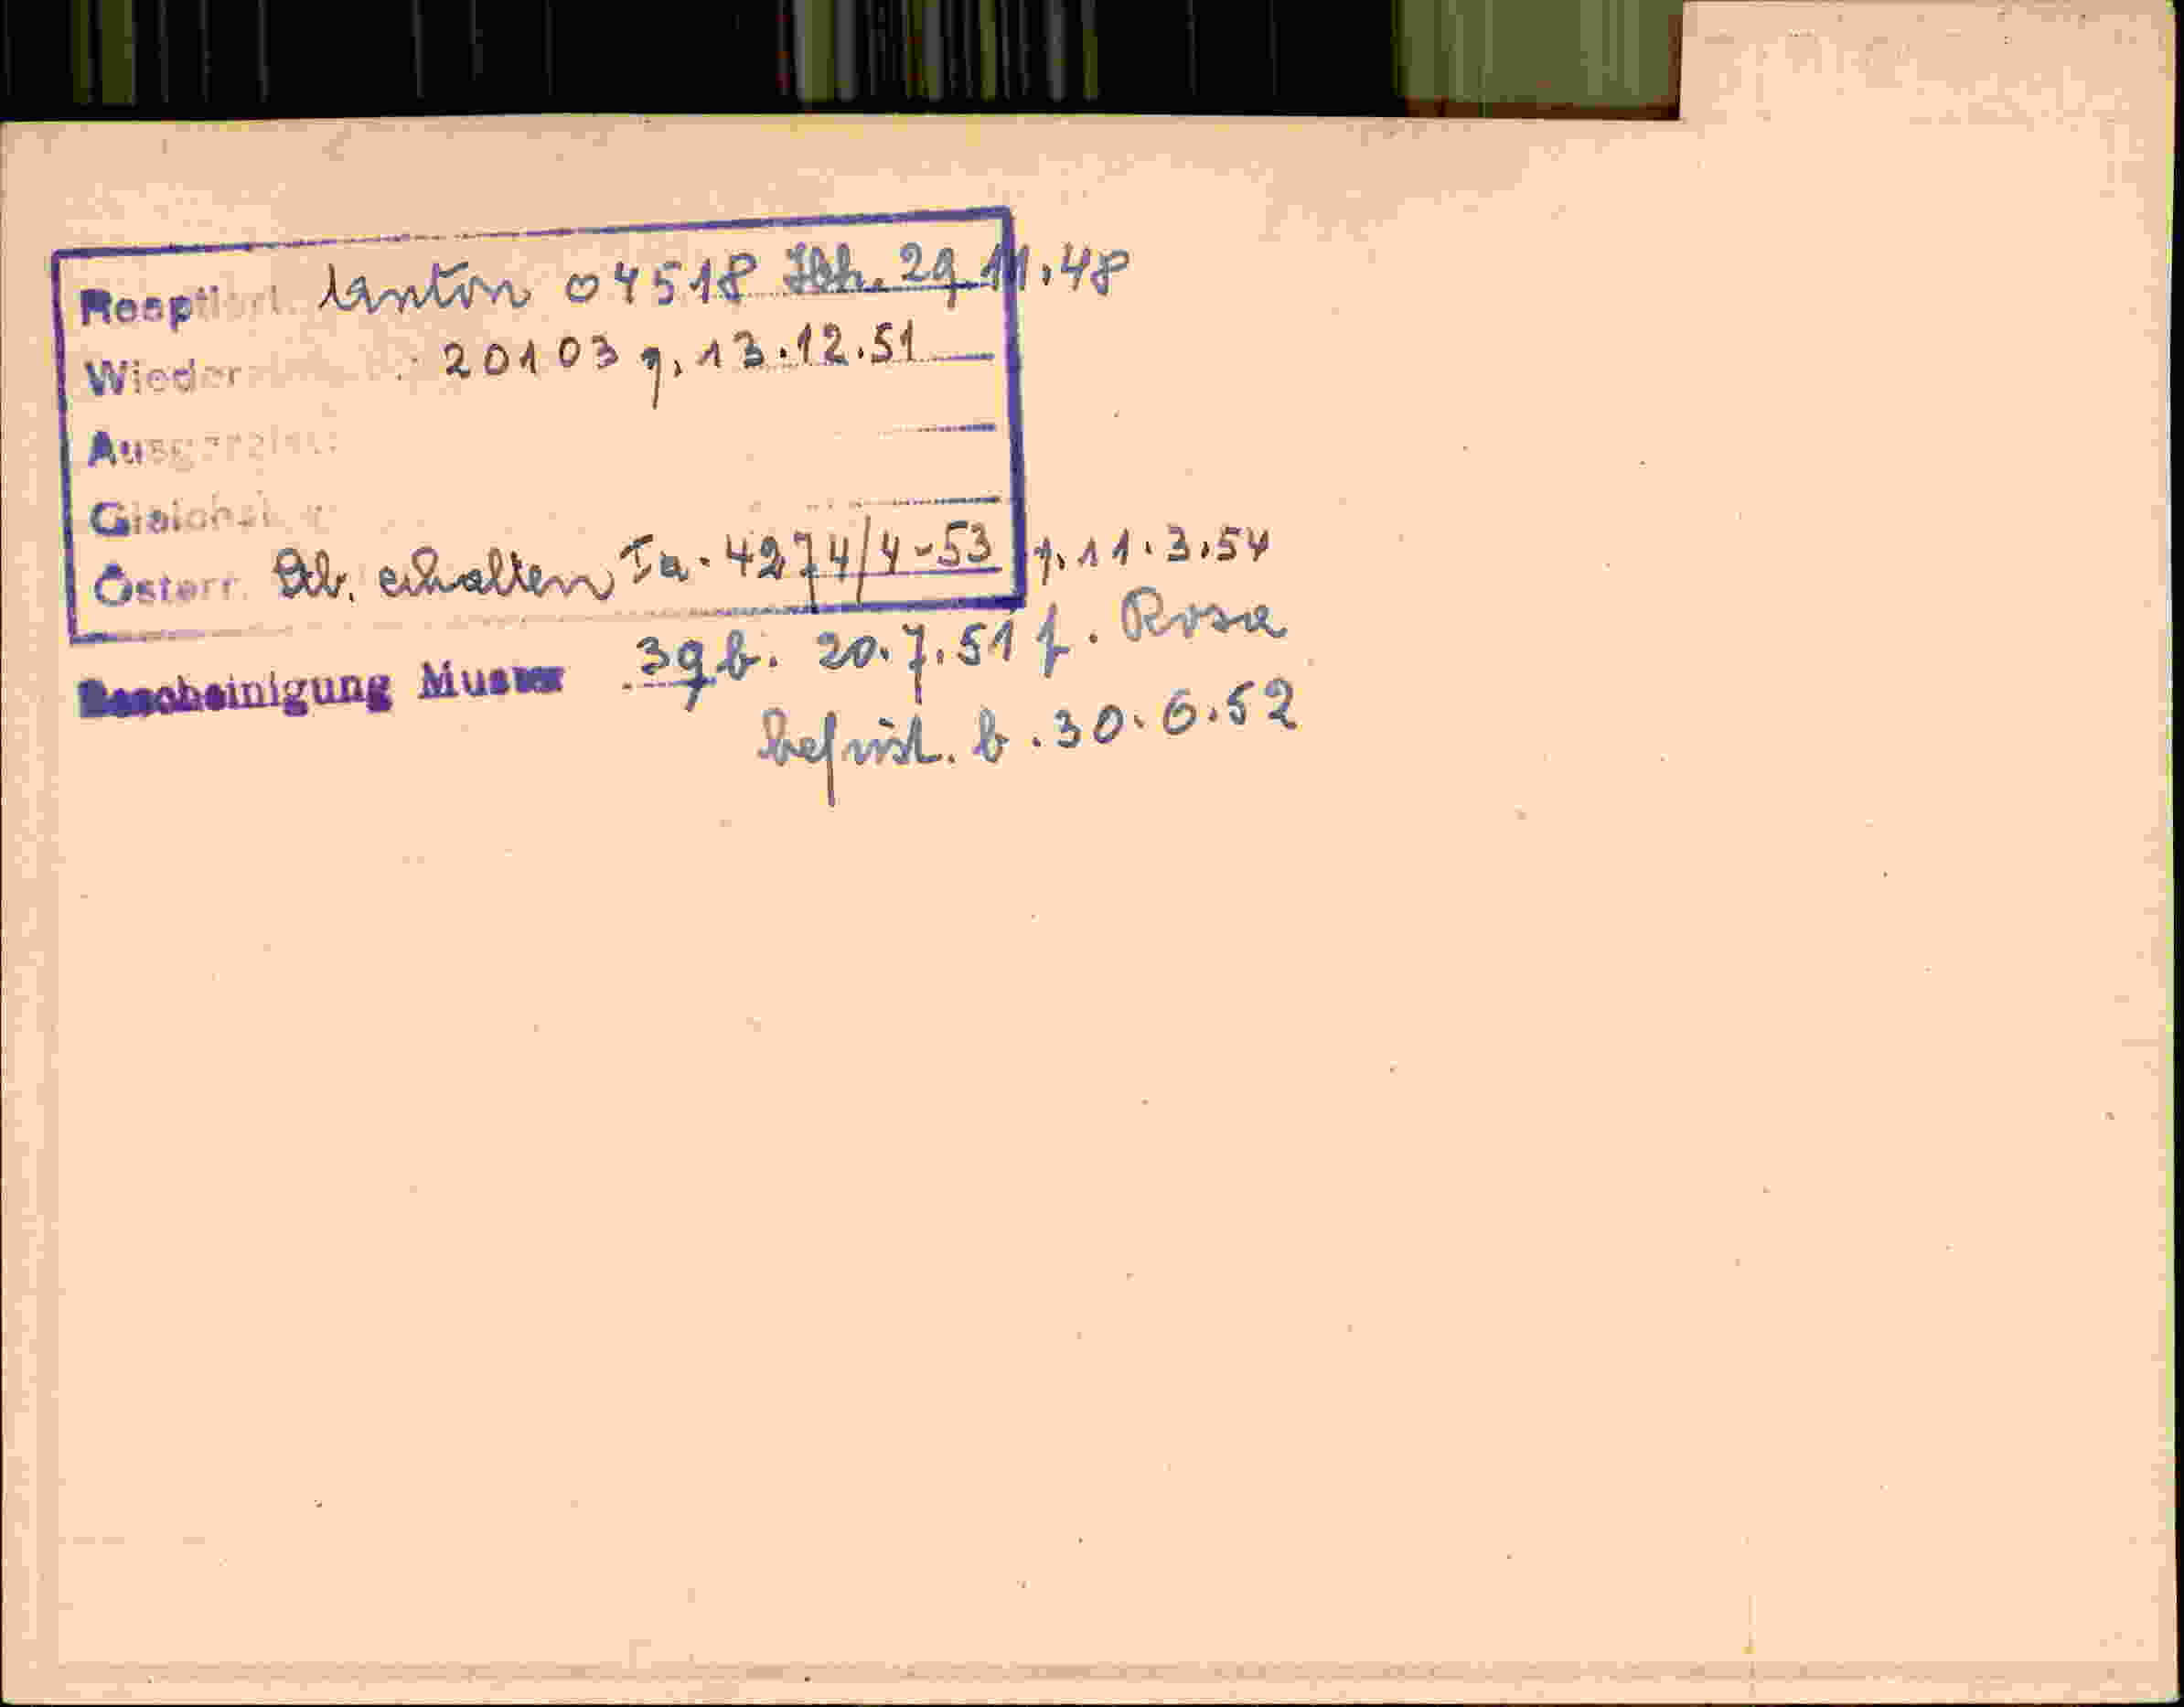 Reoptiert. Anton 04518 Ibk. 29.11.48
Wieder 20103 g. 13.12.51
Ausgereist:
Gleichst.
Österr. Stb. erhalten Ia-4274/4-53 g. 11.3.54
Bescheinigung Muster 39 b. 20.7.51 f. Rosa
befrist. b. 30.6.52